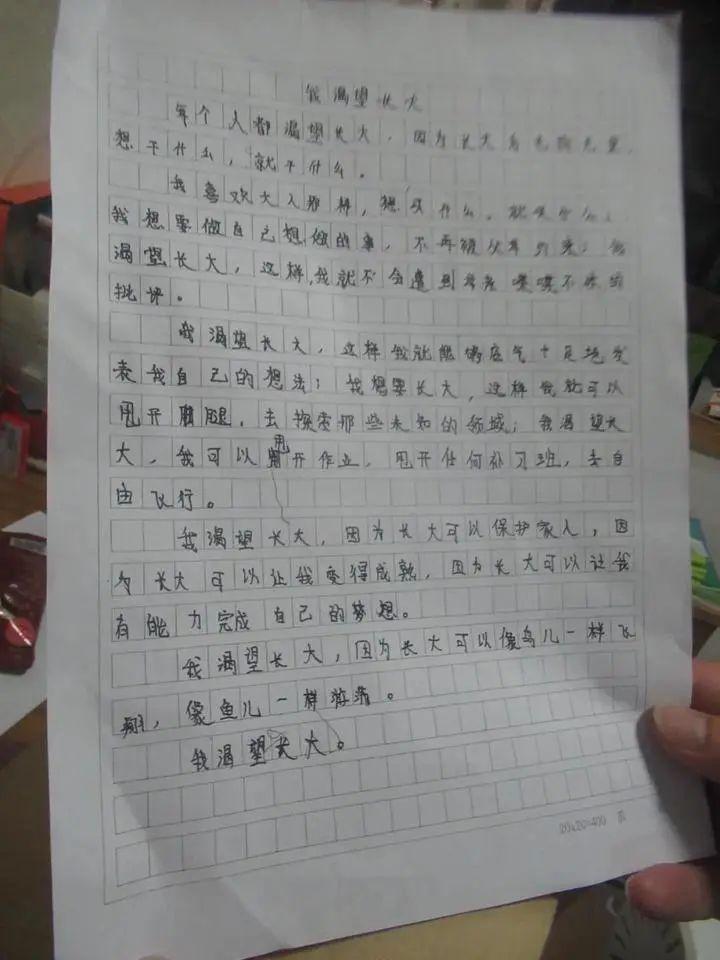 我渴望长大
每个人都渴望长大,因为长大后无拘无束,
想干什么,就干什么。
我喜欢大人那样,想买什么,就买什么,
我想要做自己想做的事,不再被父母约束;我
渴望长大,这样,我就不会遭到爸爸喋喋不休的
批评。
我渴望长大,这样我就能够底气十足地发
表我自己的想法;我想要长大,这样我就可以
甩开腿,去探索那些未知的领域;我渴望长
大,我可以甩开作业,甩开任何补习班,去自
由飞行。
我渴望长大,因为长大可以保护家人,因
为长大可以让我变得成熟,因为长大可以让我
有能力完成自己的梦想。
我渴望长大,因为长大可以像鸟儿一样飞
翔,像鱼儿一样游
我渴望长大。
20×20=400